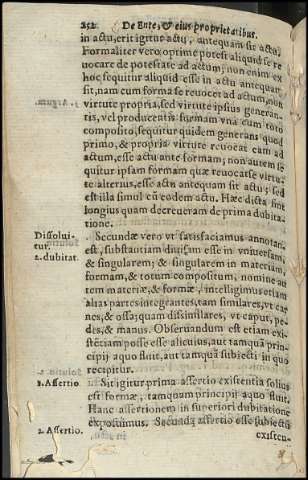 252 De Ente, & eius proprietatibus.
in actu, erit igitur actu, antequam sit actu,
Formaliter vero optime potest aliquid se re
uocare de potestate ad actum; non enim ex
hoc sequitur aliquid esse in actu antequam
sit, nam cum forma se reuocet ad actum, non
virtute propria, sed virtute ipsius generan-
tis, vel producentis formam vna cum toto
composito, sequitur quidem generans quod
primo, & propria virtute reuocat eam ad
actum, esse actu ante formam; non autem se
quitur ipsam formam quæ reuocatse virtu-
te alterius, esse actu antequam sit actu; sed
est illa simul cũ eodem actu. Hæc dicta sint
longius quam decreueram de prima dubita
tione.
Dissolui-
tur.
2. dubitat.
Secundæ vero vt satisfaciamus annotan.
est, substantiam diuisam esse in vniuersam,
& singularem; & singularem in materiam
formam, & totum compositum, nomine au
tem materiæ, & formæ, intelligimus etiam
alias partes integrantes, tam similares, vt car
nes, & ossa; quam dissimilares, vt caput, pe-
des, & manus. Obseruandum est etiam exi-
stẽtiam posse esse alicuius, aut tamquã prin-
cipij aquo fluit, aut tamquã subiecti in quo
recipitur.
1. Assertio.
Sit igitur prima assertio existentia solius
est formæ, tamquam principij aquo fluit.
Hanc assertionem in superiori dubitatione
2. Assertio.
expostuimus. Secunda assertio esse subiecti
existen-